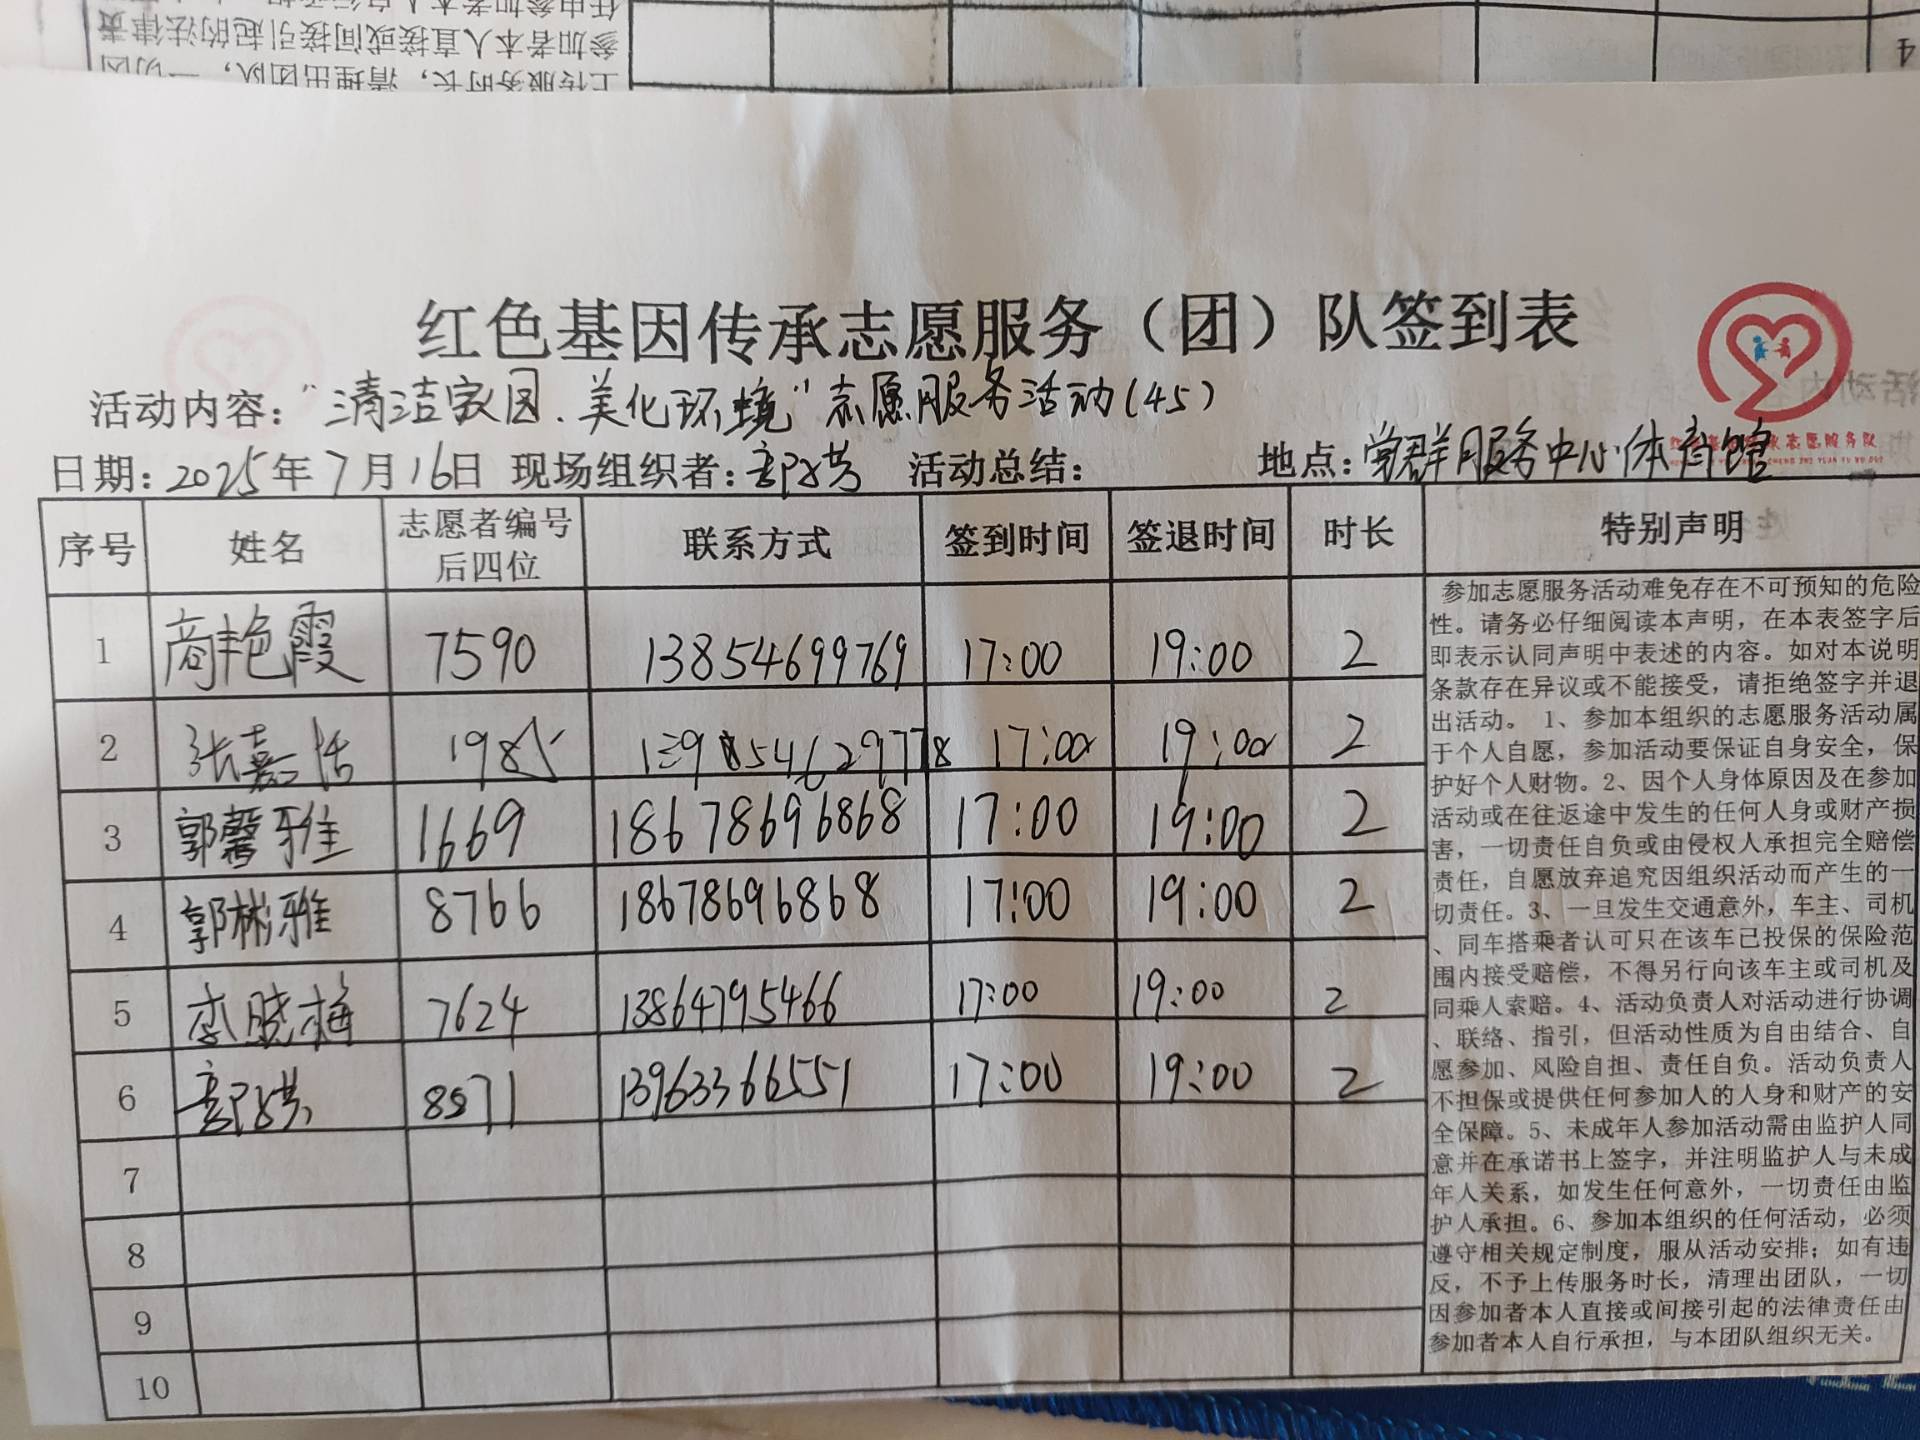 参加者本人直接或间接引起的法律责
上传服务时长，清理出团队，一切因
4
红色基因传承志愿服务（团）队签到表
活动内容："清洁家园.美化环境"志愿服务活动(45)
日期：2025年7月16日 现场组织者： 活动总结： 地点：党群服务中心体育馆
序号 姓名 志愿者编号后四位 联系方式 签到时间 签退时间 时长 特别声明
1 商艳霞 7590 13854699769 17:00 19:00 2
2 张嘉 198 17:00 19:00 2
3 郭馨雅 1669 18678696868 17:00 19:00 2
4 郭彬雅 8766 18678696868 17:00 19:00 2
5 李晓梅 7624 13864795466 17:00 19:00 2
6 8571 13963366551 17:00 19:00 2
7
8
9
10
参加志愿服务活动难免存在不可预知的危险
性。请务必仔细阅读本声明，在本表签字后
即表示认同声明中表述的内容。如对本说明
条款存在异议或不能接受，请拒绝签字并退
出活动。 1、参加本组织的志愿服务活动属
于个人自愿，参加活动要保证自身安全，保
护好个人财物。2、因个人身体原因及在参加
活动或在往返途中发生的任何人身或财产损
害，一切责任自负或由侵权人承担完全赔偿
责任，自愿放弃追究因组织活动而产生的一
切责任。3、一旦发生交通意外，车主、司机
、同车搭乘者认可只在该车已投保的保险范
围内接受赔偿，不得另行向该车主或司机及
同乘人索赔。4、活动负责人对活动进行协调
、联络、指引，但活动性质为自由结合、自
愿参加、风险自担、责任自负。活动负责人
不担保或提供任何参加人的人身和财产的安
全保障。5、未成年人参加活动需由监护人同
意并在承诺书上签字，并注明监护人与未成
年人关系，如发生任何意外，一切责任由监
护人承担。6、参加本组织的任何活动，必须
遵守相关规定制度，服从活动安排；如有违
反，不予上传服务时长，清理出团队，一切
因参加者本人直接或间接引起的法律责任由
参加者本人自行承担，与本团队组织无关。